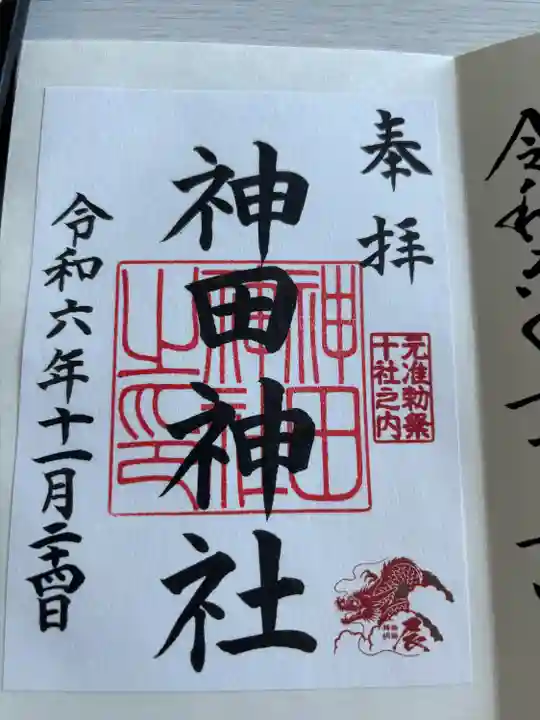 奉拝
元准勅祭
十社之内
神田神社
神田神社之印
令和六年十一月二十四日
辰